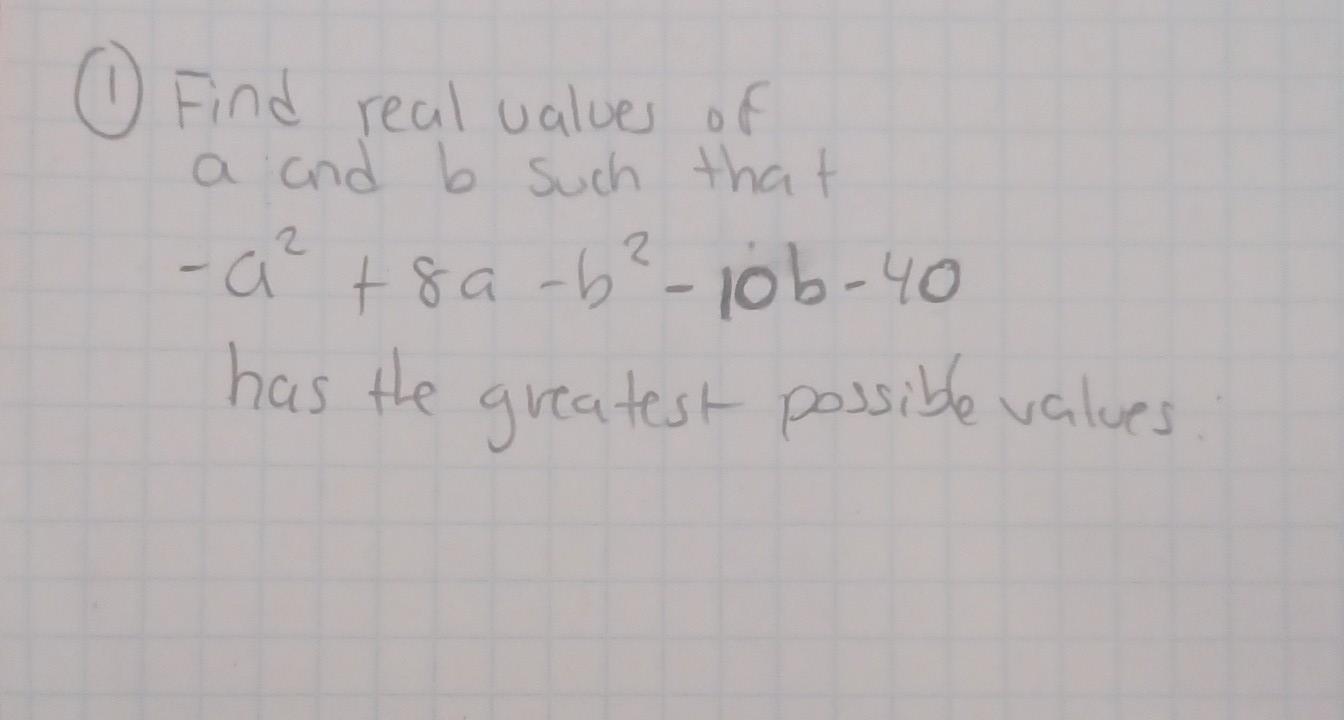 ① Find real values of
a and b such that
-a² + 8a - b² - 10b - 40
has the greatest possible values.